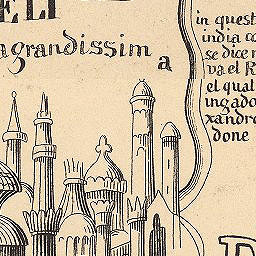 ELI
agrandissim
a
in quest
india co
se dice n
va el R
el qual
ingado
xandro
done